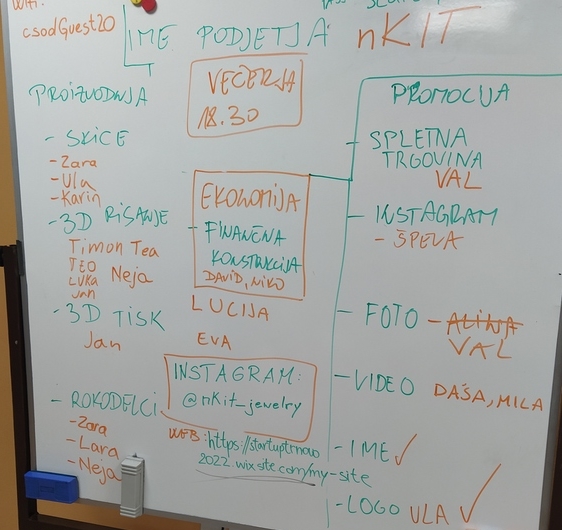 WiFi:
csodGuest20
IME PODJETJA nKIT
VEČERJA
18.30
PROIZVODNJA
- SKICE
- Zara
- Ula
- Karin
- 3D RISANJE
Timon Tea
TEO
LUKA Neja
Jan
- 3D TISK
Jan
- ROKODELCI
- Zara
- Lara
- Neja
EKONOMIJA
- FINANČNA
KONSTRUKCIJA
DAVID, NIKO
LUCIJA
EVA
INSTAGRAM:
@nKit_jewelry
WEB: https://startuptrnovo
2022.wixsite.com/my-site
PROMOCIJA
- SPLETNA
TRGOVINA
VAL
- INSTAGRAM
- ŠPELA
- FOTO - ALINA
VAL
- VIDEO DAŠA, MILA
- IME ✓
- LOGO ULA ✓